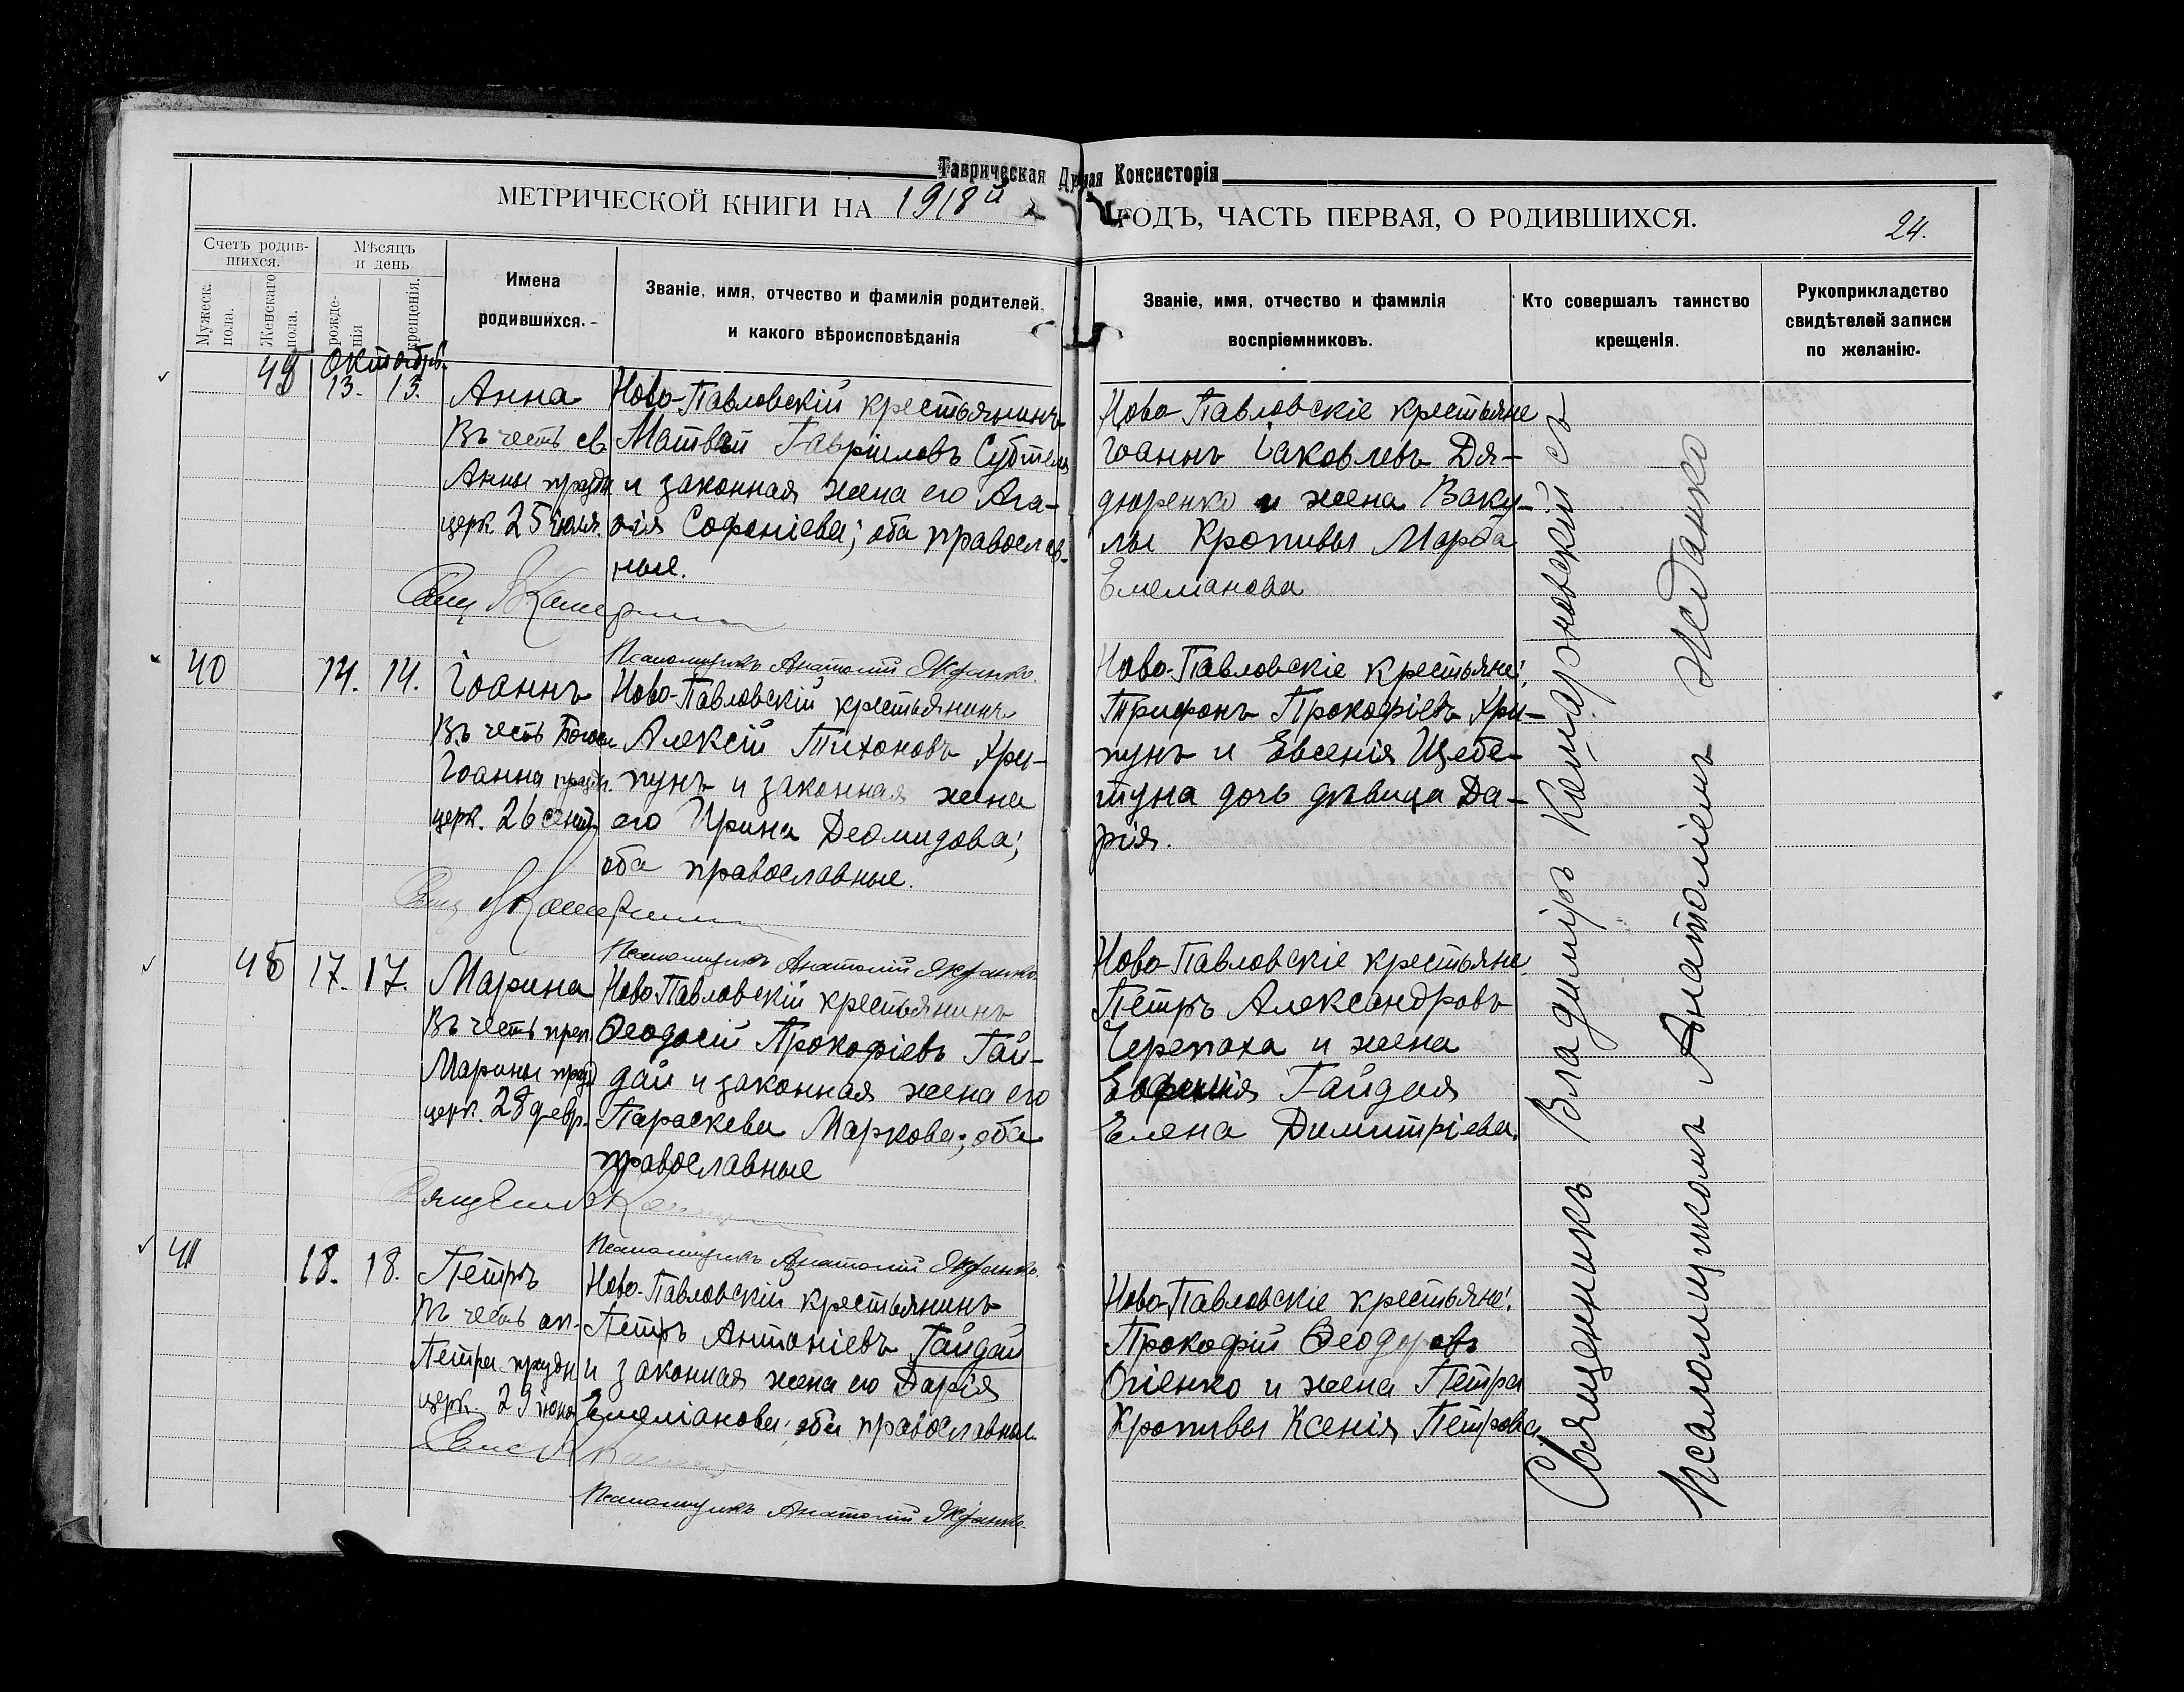 Таврическая Духная Консисторія
МЕТРИЧЕСКОЙ КНИГИ НА 1918й ГОДЪ, ЧАСТЬ ПЕРВАЯ, О РОДИВШИХСЯ.
24.
Счетъ родив-
шихся.
Мужеск.
пола.
Женскаго
пола.
Мѣсяцъ
и день
рожде-
нія
крещенія.
Имена
родившихся.
Званіе, имя, отчество и фамилія родителей,
и какого вѣроисповѣданія
Званіе, имя, отчество и фамилія
воспріемниковъ.
Кто совершалъ таинство
крещенія.
Рукоприкладство
свидѣтелей записи
по желанію.
Октябрь.
13. 13.
Анна
Въ честь св.
Анны праздн
церк. 25 іюля.
Ново-Павловскій крестьянинъ
Матвѣй Гавріиловъ
и законная жена его Ага-
ѳія Софоніева; оба православ-
ные.
Ново-Павловскіе крестьяне
Іоаннъ Іаковлевъ Дя-
дюренко и жена Ваку-
лы Кропивы Марѳа
Емеліанова
Свящ
Псаломщикъ Анатолій Жданко.
40
14. 14.
Іоаннъ
Въ честь Богосл
Іоанна праздн.
церк. 26 сент.
Ново-Павловскій крестьянинъ
Алексій Тихоновъ Хри-
пунъ и законная жена
его Ирина Деомидова;
оба православные.
Ново-Павловскіе крестьяне:
Трифонъ Прокофіевъ Хри-
пунъ и Евсенія Щебе-
туна дочь дѣвица Да-
рія.
Свящ
Псаломщикъ Анатолій Жданко.
17. 17.
Марина
Въ честь преп.
Марины празд
церк. 28 февр.
Ново-Павловскій крестьянинъ
Ѳеодосій Прокофіевъ Гай-
дай и законная жена его
Параскева Маркова; оба
православные
Ново-Павловскіе крестьяне
Петръ Александровъ
Черепаха и жена
Гайдая
Елена Димитріева.
Священ
Псаломщикъ Анатолій Жданко.
41
18. 18.
Петръ
Въ честь ап.
Петра праздн
церк. 29 іюня
Ново-Павловскій крестьянинъ
Петръ Антоніевъ Гайдай
и законная жена его Дарія
Емеліанова; оба православные.
Ново-Павловскіе крестьяне:
Прокофій Ѳеодоровъ
Огіенко и жена Петра
Кропивы Ксенія Петрова
Псаломщикъ Анатолій Жданко.
Священникъ Владиміръ съ
Псаломщикомъ Анатоліемъ Жданко